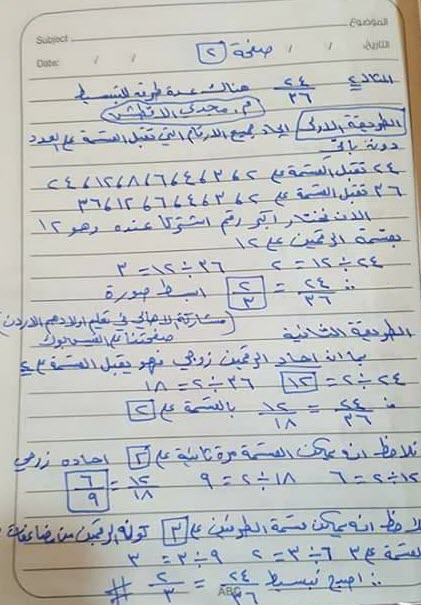 Subject الموضوع
Date: / / صفحة ٢ / / التاريخ
المثال ٢٤/٣٦ هنالك عدة طرق للتبسيط
م. مجدي
الطريقة الاولى ايجاد جميع الارقام التي تقبل القسمة على العدد
دون باقي
٢٤ تقبل القسمة على ٢، ٣، ٤، ٦، ٨، ١٢، ٢٤
٣٦ تقبل القسمة على ٢، ٣، ٤، ٦، ١٢، ٣٦
الان نختار اكبر رقم اشتركا عنده وهو ١٢
بقسمة الرقمين على ١٢
٢٤ ÷ ١٢ = ٢ ٣٦ ÷ ١٢ = ٣
∴ ٢٤/٣٦ = ٢/٣ ابسط صورة
(مشاركة الاهالي في تعليم اولادهم الاردن)
الطريقة الثانية صفحتنا على الفيس بوك
بما ان احاد الرقمين زوجي فهو يقبل القسمة على ٢
٢٤ ÷ ٢ = ١٢ ٣٦ ÷ ٢ = ١٨
∴ ٢٤/٣٦ = ١٢/١٨ بالقسمة على ٢
نلاحظ انه يمكن القسمة مرة ثانية على ٢ احاده زوجي
١٢ ÷ ٢ = ٦ ١٨ ÷ ٢ = ٩ ١٢/١٨ = ٦/٩
لاحظ انه يمكن قسمة الطرفين على ٣ كون الرقمين من مضاعفات
القسمة على ٣ ٦ ÷ ٣ = ٢ ٩ ÷ ٣ = ٣
∴ اصبح تبسيط ٢٤/٣٦ = ٢/٣ #
ABC